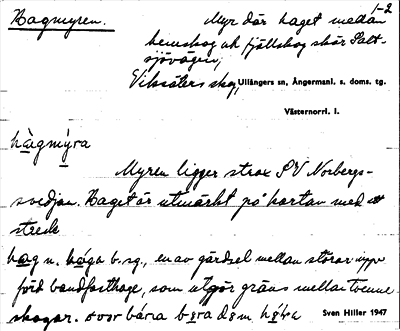 Hagmyren.
1-2
Myr där haget medan
hemskog och fjällskog skär Salt-
sjövägen,
Viksäters skog, Ullångers sn, Ångermanl. s. doms. tg.
Västernorrl. l.
hàgmýra
Myren ligger strax SV Norbergs-
svedjan. Haget är utmärkt på kartan med ett
streck
hag n. hága b. sg., en av gärdsel mellan störar uppe
förd bandfasthage, som utgör gräns mellan tvenne
skogar.
Sven Hiller 1947